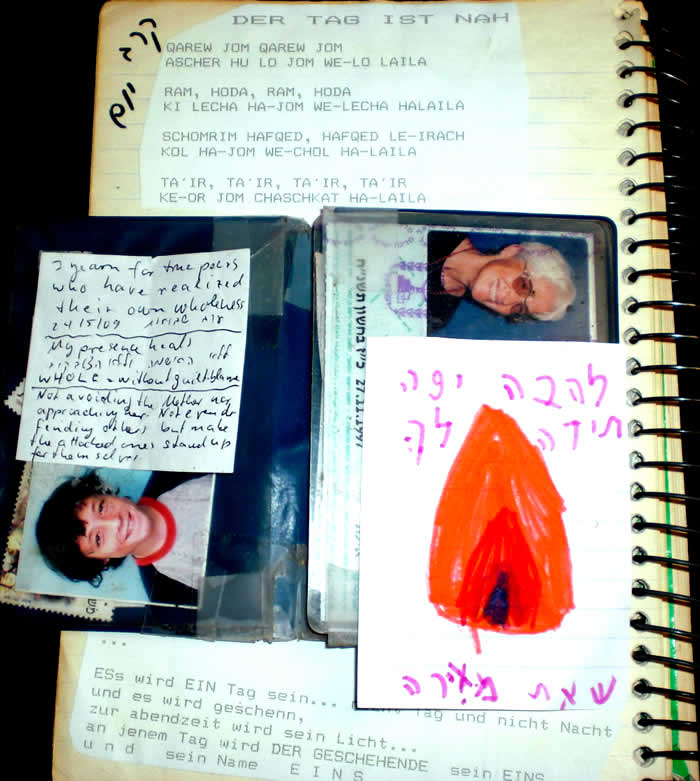 DER TAG IST NAH
קרב יום
QAREW JOM QAREW JOM
ASCHER HU LO JOM WE-LO LAILA
RAM, HODA, RAM, HODA
KI LECHA HA-JOM WE-LECHA HALAILA
SCHOMRIM HAFQED, HAFQED LE-IRACH
KOL HA-JOM WE-CHOL HA-LAILA
TA'IR, TA'IR, TA'IR, TA'IR
KE-OR JOM CHASCHKAT HA-LAILA
I yearn for true peers
who have realized
their own wholeness
24/5/09
My presence heals
WHOLE = without guilt+blame
Not avoiding the Mother nor
approaching her. Not even de
fending others but make
the attacked ones stand up
for themselves
27.11.1997
להבה יפה
תודה לך
שאת מאירה
...
ESs wird EIN Tag sein... Tag und nicht Nacht
und es wird geschenn,
zur abendzeit wird sein Licht...
an jenem Tag wird DER GESCHEHENDE sein EINS
und sein Name EINS